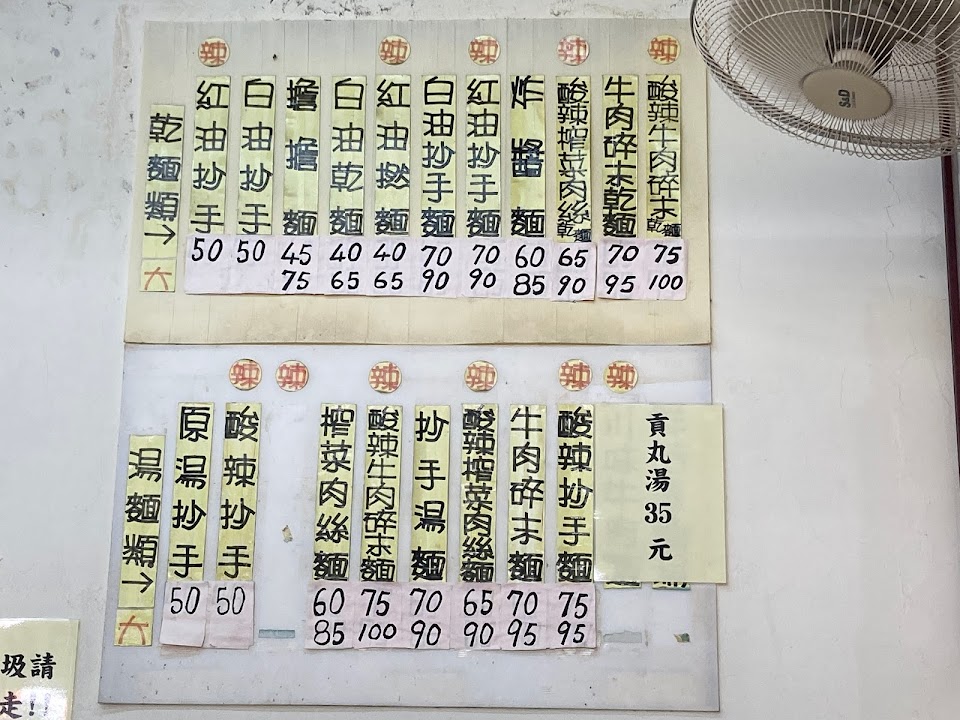 辣 辣 辣 辣 辣
乾麵類→
大
紅油抄手
50
白油抄手
50
擔擔麵
45
75
白油乾麵
40
65
紅油撚麵
40
65
白油抄手麵
70
90
紅油抄手麵
70
90
炸醬麵
60
85
酸辣榨菜肉絲乾麵
65
90
牛肉碎末乾麵
70
95
酸辣牛肉碎末乾麵
75
100
辣 辣 辣 辣 辣 辣
湯麵類→
大
原湯抄手
50
酸辣抄手
50
榨菜肉絲麵
60
85
酸辣牛肉碎末麵
75
100
抄手湯麵
70
90
酸辣榨菜肉絲麵
65
90
牛肉碎末麵
70
95
酸辣抄手麵
75
95
貢丸湯35元
圾請
走!!
S&D